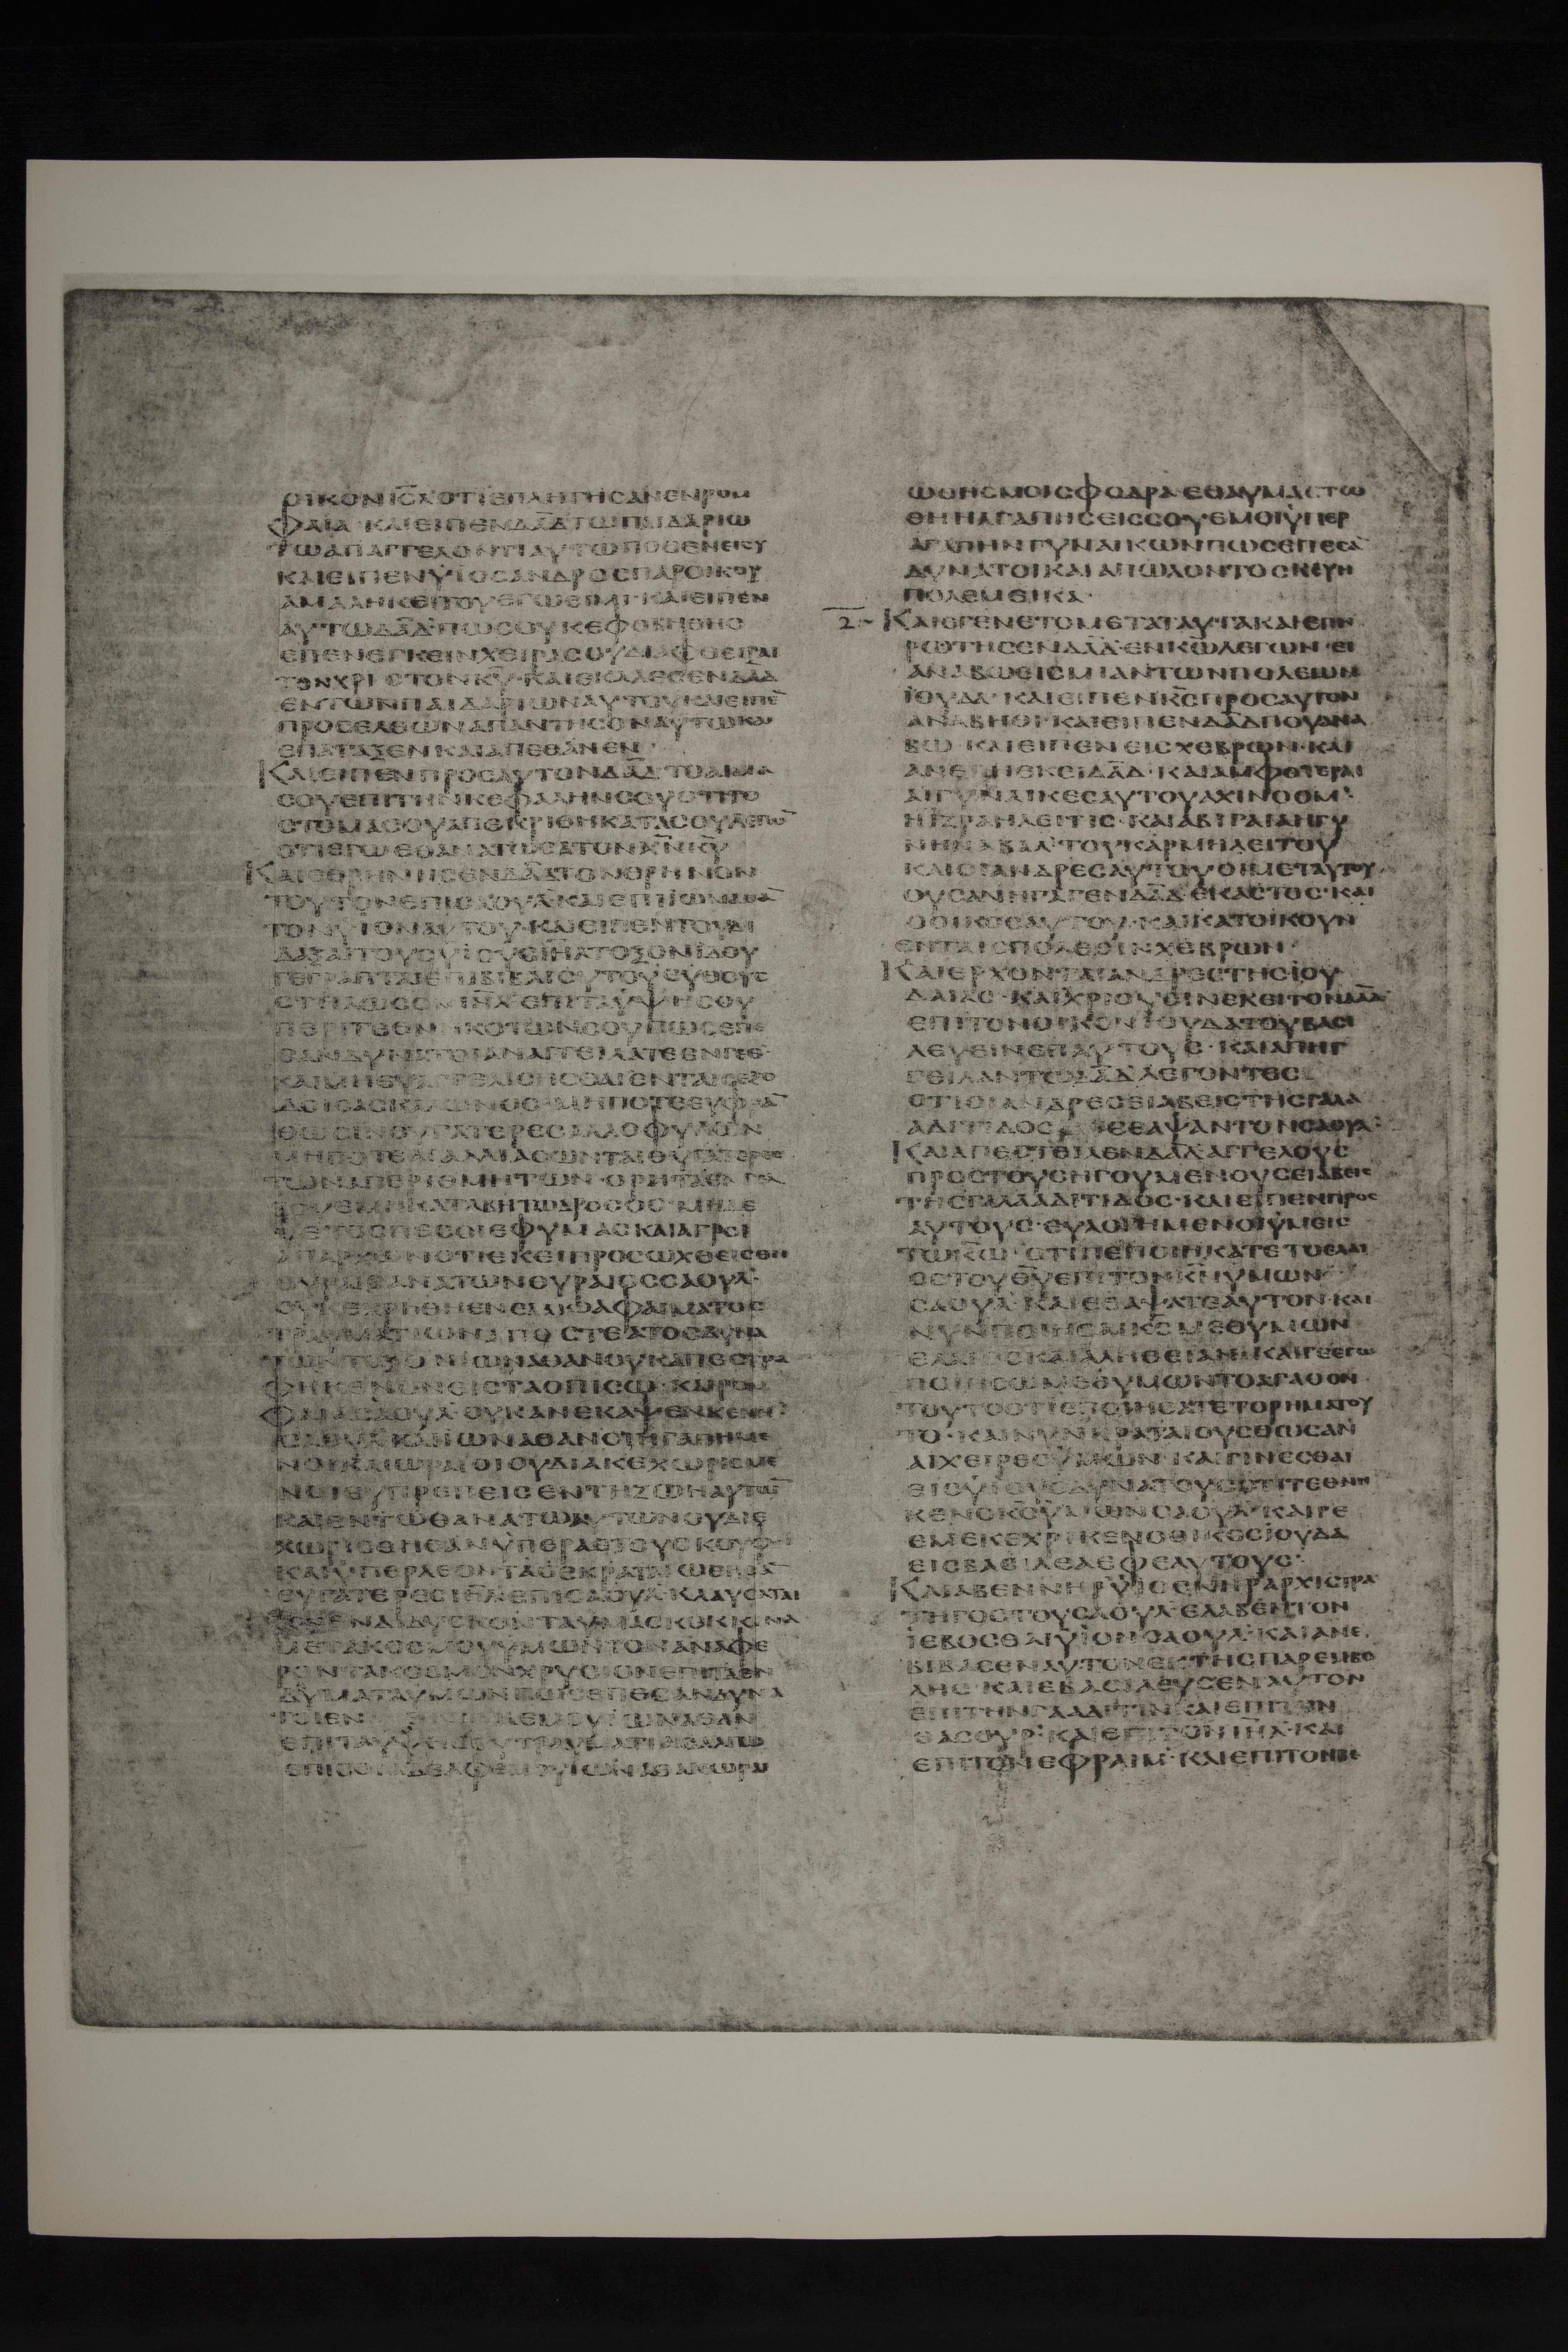 ΟΙΚΟΝ ΙΣ̅Λ ΟΤΙ ΕΠΛΗΓΗΣΑΝ ΕΝ ΡΟΜ
ΦΑΙΑ· ΚΑΙ ΕΙΠΕΝ ΔΑ̅Δ ΤΩ ΠΑΙΔΑΡΙΩ
ΤΩ ΑΠΑΓΓΕΛΟΝΤΙ ΑΥΤΩ ΠΟΘΕΝ ΕΙ ΣΥ
ΚΑΙ ΕΙΠΕΝ ΥΙΟΣ ΑΝΔΡΟΣ ΠΑΡΟΙΚΟΥ
ΑΜΑΛΗΚΕΙΤΟΥ ΕΓΩ ΕΙΜΙ· ΚΑΙ ΕΙΠΕΝ
ΑΥΤΩ ΔΑ̅Δ· ΠΩΣ ΟΥΚ ΕΦΟΒΗΘΗΣ
ΕΠΕΝΕΓΚΕΙΝ ΧΕΙΡΑ ΣΟΥ ΔΙΑΦΘΕΙΡΑΙ
ΤΟΝ ΧΡΙΣΤΟΝ Κ̅Υ· ΚΑΙ ΕΚΑΛΕΣΕΝ ΔΑ̅Δ
ΕΝ ΤΩΝ ΠΑΙΔΑΡΙΩΝ ΑΥΤΟΥ ΚΑΙ ΕΙΠΕ̅
ΠΡΟΣΕΛΘΩΝ ΑΠΑΝΤΗΣΟΝ ΑΥΤΩ ΚΑΙ
ΕΠΑΤΑΞΕΝ ΚΑΙ ΑΠΕΘΑΝΕΝ·
ΚΑΙ ΕΙΠΕΝ ΠΡΟΣ ΑΥΤΟΝ ΔΑ̅Δ ΤΟ ΑΙΜΑ
ΣΟΥ ΕΠΙ ΤΗΝ ΚΕΦΑΛΗΝ ΣΟΥ ΟΤΙ ΤΟ
ΣΤΟΜΑ ΣΟΥ ΑΠΕΚΡΙΘΗ ΚΑΤΑ ΣΟΥ ΛΕΓΩ̅
ΟΤΙ ΕΓΩ ΕΘΑΝΑΤΩΣΑ ΤΟΝ Χ̅Ν Κ̅Υ
ΚΑΙ ΕΘΡΗΝΗΣΕΝ ΔΑ̅Δ ΤΟΝ ΘΡΗΝΟΝ
ΤΟΥΤΟΝ ΕΠΙ ΣΑΟΥΛ· ΚΑΙ ΕΠΙ ΙΩΝΑΘΑ̅
ΤΟΝ ΥΙΟΝ ΑΥΤΟΥ· ΚΑΙ ΕΙΠΕΝ ΤΟΥ ΔΙ
ΔΑΞΑΙ ΤΟΥΣ ΥΙΟΥΣ ΙΗ̅Λ ΤΟΞΟΝ ΙΔΟΥ
ΓΕΓΡΑΠΤΑΙ ΕΠΙ ΒΙΒΛΙΟΥ ΤΟΥ ΕΥΘΟΥΣ
ΣΤΗΛΩΣΟΝ ΙΗ̅Λ· ΕΠΙ ΤΑ ΥΨΗ ΣΟΥ
ΠΕΡΙ ΤΕΘΝΗΚΟΤΩΝ ΣΟΥ ΠΩΣ ΕΠΕ
ΣΑΝ ΔΥΝΑΤΟΙ ΑΝΑΓΓΕΙΛΑΤΕ ΕΝ ΓΕΘ·
ΚΑΙ ΜΗ ΕΥΑΓΓΕΛΙΣΗΣΘΑΙ ΕΝ ΤΑΙΣ ΕΞΟ
ΔΟΙΣ ΑΣΚΑΛΩΝΟΣ· ΜΗΠΟΤΕ ΕΥΦΡΑ̅
ΘΩΣΙΝ ΘΥΓΑΤΕΡΕΣ ΑΛΛΟΦΥΛΩΝ
ΜΗΠΟΤΕ ΑΓΑΛΛΙΑΣΩΝΤΑΙ ΘΥΓΑΤΕΡΕΣ
ΤΩΝ ΑΠΕΡΙΤΜΗΤΩΝ· ΟΡΗ ΤΑ ΕΝ ΓΕΛ
ΒΟΥΕ ΜΗ ΚΑΤΑΒΗΤΩ ΔΡΟΣΟΣ· ΜΗΔΕ
ΥΕΤΟΣ ΠΕΣΟΙ ΕΦ ΥΜΑΣ ΚΑΙ ΑΓΡΟΙ
ΑΠΑΡΧΩΝ ΟΤΙ ΕΚΕΙ ΠΡΟΣΩΧΘΕΙΣΘΗ
ΘΥΡΕΟΣ ΔΥΝΑΤΩΝ ΘΥΡΑΙΟΣ ΣΑΟΥΛ·
ΟΥΚ ΕΧΡΗΘΗ ΕΝ ΕΛΑΙΩ ΑΦ ΑΙΜΑΤΟΣ
ΤΡΑΥΜΑΤΙΩΝ ΑΠΟ ΣΤΕΑΤΟΣ ΔΥΝΑ
ΤΩΝ ΤΟΞΟΝ ΙΩΝΑΘΑΝ ΟΥΚ ΑΠΕΣΤΡΑ
ΦΗ ΚΕΝΟΝ ΕΙΣ ΤΑ ΟΠΙΣΩ· ΚΑΙ ΡΟΜ
ΦΑΙΑ ΣΑΟΥΛ· ΟΥΚ ΑΝΕΚΑΨΕΝ ΚΕΝΗ·
ΣΑΟΥΛ· ΚΑΙ ΙΩΝΑΘΑΝ ΟΙ ΗΓΑΠΗΜΕ
ΝΟΙ ΚΑΙ ΩΡΑΙΟΙ ΟΥ ΔΙΑΚΕΧΩΡΙΣΜΕ
ΝΟΙ ΕΥΠΡΕΠΕΙΣ ΕΝ ΤΗ ΖΩΗ ΑΥΤΩ̅
ΚΑΙ ΕΝ ΤΩ ΘΑΝΑΤΩ ΑΥΤΩΝ ΟΥ ΔΙΕ
ΧΩΡΙΣΘΗΣΑΝ ΥΠΕΡ ΑΕΤΟΥΣ ΚΟΥΦΟΙ
ΚΑΙ ΥΠΕΡ ΛΕΟΝΤΑΣ ΕΚΡΑΤΑΙΩΘΗΣΑ̅
ΘΥΓΑΤΕΡΕΣ ΙΗ̅Λ ΕΠΙ ΣΑΟΥΛ· ΚΛΑΥΣΑΤΑΙ
ΤΟΝ ΕΝΔΙΔΥΣΚΟΝΤΑ ΥΜΑΣ ΚΟΚΚΙΝΑ
ΜΕΤΑ ΚΟΣΜΟΥ ΥΜΩΝ ΤΟΝ ΑΝΑΦΕ
ΡΟΝΤΑ ΚΟΣΜΟΝ ΧΡΥΣΙΟΝ ΕΠΙ ΤΑ ΕΝ
ΔΥΜΑΤΑ ΥΜΩΝ ΠΩΣ ΕΠΕΣΑΝ ΔΥΝΑ
ΤΟΙ ΕΝ ΠΟΛΕΜΟΥ ΙΩΝΑΘΑΝ
ΕΠΙ ΤΑ ΥΨΗ ΣΟΥ ΤΡΑΥΜΑΤΙΑΣ ΑΛΓΩ
ΕΠΙ ΣΟΙ ΑΔΕΛΦΕ ΜΟΥ ΙΩΝΑΘΑΝ ΩΡΑΙ
ΩΘΗΣ ΜΟΙ ΣΦΟΔΡΑ ΕΘΑΥΜΑΣΤΩ
ΘΗ Η ΑΓΑΠΗΣΕΙΣ ΣΟΥ ΕΜΟΙ ΥΠΕΡ
ΑΓΑΠΗΝ ΓΥΝΑΙΚΩΝ ΠΩΣ ΕΠΕΣΑ̅
ΔΥΝΑΤΟΙ ΚΑΙ ΑΠΩΛΟΝΤΟ ΣΚΕΥΗ
ΠΟΛΕΜΕΙΚΑ·
2 ΚΑΙ ΕΓΕΝΕΤΟ ΜΕΤΑ ΤΑΥΤΑ ΚΑΙ ΕΠΗ
ΡΩΤΗΣΕΝ ΔΑ̅Δ· ΕΝ Κ̅Ω ΛΕΓΩΝ· ΕΙ
ΑΝΑΒΩ ΕΙΣ ΜΙΑΝ ΤΩΝ ΠΟΛΕΩΝ
ΙΟΥΔΑ· ΚΑΙ ΕΙΠΕΝ Κ̅Σ ΠΡΟΣ ΑΥΤΟΝ
ΑΝΑΒΗΘΙ· ΚΑΙ ΕΙΠΕΝ ΔΑ̅Δ ΠΟΥ ΑΝΑ
ΒΩ· ΚΑΙ ΕΙΠΕΝ ΕΙΣ ΧΕΒΡΩΝ· ΚΑΙ
ΑΝΕΒΗ ΕΚΕΙ ΔΑ̅Δ· ΚΑΙ ΑΜΦΟΤΕΡΑΙ
ΑΙ ΓΥΝΑΙΚΕΣ ΑΥΤΟΥ ΑΧΙΝΟΟΜ·
Η ΙΖΡΑΗΛΕΙΤΙΣ· ΚΑΙ ΑΒΙΓΑΙΑ Η ΓΥ
ΝΗ ΝΑΒΑΛ· ΤΟΥ ΚΑΡΜΗΛΕΙΤΟΥ
ΚΑΙ ΟΙ ΑΝΔΡΕΣ ΑΥΤΟΥ ΟΙ ΜΕΤ ΑΥΤΟΥ
ΟΥΣ ΑΝΗΓΑΓΕΝ ΔΑ̅Δ ΕΚΑΣΤΟΣ· ΚΑΙ
Ο ΟΙΚΟΣ ΑΥΤΟΥ· ΚΑΙ ΚΑΤΟΙΚΟΥΝ
ΕΝ ΤΑΙΣ ΠΟΛΕΣΙΝ ΧΕΒΡΩΝ·
ΚΑΙ ΕΡΧΟΝΤΑΙ ΑΝΔΡΕΣ ΤΗΣ ΙΟΥ
ΔΑΙΑΣ· ΚΑΙ ΧΡΙΟΥΣΙΝ ΕΚΕΙ ΤΟΝ ΔΑ̅Δ
ΕΠΙ ΤΟΝ ΟΙΚΟΝ ΙΟΥΔΑ ΤΟΥ ΒΑΣΙ
ΛΕΥΕΙΝ ΕΠ ΑΥΤΟΥΣ· ΚΑΙ ΑΠΗΓ
ΓΕΙΛΑΝ ΤΩ ΔΑ̅Δ ΛΕΓΟΝΤΕΣ
ΟΤΙ ΟΙ ΑΝΔΡΕΣ ΕΙΑΒΕΙΣ ΤΗΣ ΓΑΛΑ
ΑΔΙΤΙΔΟΣ ΕΘΑΨΑΝ ΤΟΝ ΣΑΟΥΛ·
ΚΑΙ ΑΠΕΣΤΕΙΛΕΝ ΔΑ̅Δ ΑΓΓΕΛΟΥΣ
ΠΡΟΣ ΤΟΥΣ ΗΓΟΥΜΕΝΟΥΣ ΕΙΑΒΕΙΣ
ΤΗΣ ΓΑΛΑΑΔΙΤΙΔΟΣ· ΚΑΙ ΕΙΠΕΝ ΠΡΟΣ
ΑΥΤΟΥΣ· ΕΥΛΟΓΗΜΕΝΟΙ ΥΜΕΙΣ
ΤΩ Κ̅Ω· ΟΤΙ ΠΕΠΟΙΗΚΑΤΕ ΤΟ ΕΛΕ
ΟΣ ΤΟΥ Θ̅Υ ΕΠΙ ΤΟΝ Κ̅Ν ΥΜΩΝ
ΣΑΟΥΛ· ΚΑΙ ΕΘΑΨΑΤΕ ΑΥΤΟΝ· ΚΑΙ
ΝΥΝ ΠΟΙΗΣΑΙ Κ̅Σ ΜΕΘ ΥΜΩΝ
ΕΛΑΙΟΣ ΚΑΙ ΑΛΗΘΕΙΑΝ· ΚΑΙ ΓΕ ΕΓΩ
ΠΟΙΗΣΩ ΜΕΘ ΥΜΩΝ ΤΟ ΑΓΑΘΟΝ
ΤΟΥΤΟ ΟΤΙ ΕΠΟΙΗΣΑΤΕ ΤΟ ΡΗΜΑ ΤΟΥ
ΤΟ· ΚΑΙ ΝΥΝ ΚΡΑΤΑΙΟΥΣΘΩΣΑΝ
ΑΙ ΧΕΙΡΕΣ ΥΜΩΝ· ΚΑΙ ΓΙΝΕΣΘΑΙ
ΕΙΣ ΥΙΟΥΣ ΔΥΝΑΤΟΥΣ ΟΤΙ ΤΕΘΝΗ
ΚΕΝ Ο Κ̅Σ ΥΜΩΝ ΣΑΟΥΛ· ΚΑΙ ΓΕ
ΕΜΕ ΚΕΧΡΙΚΕΝ Ο ΟΙΚΟΣ ΙΟΥΔΑ
ΕΙΣ ΒΑΣΙΛΕΑ ΕΦ ΕΑΥΤΟΥΣ·
ΚΑΙ ΑΒΕΝΝΗΡ ΥΙΟΣ ΝΗΡ ΑΡΧΙΣΤΡΑ
ΤΗΓΟΣ ΤΟΥ ΣΑΟΥΛ· ΕΛΑΒΕΝ ΤΟΝ
ΙΕΒΟΣΘΑΙ ΥΙΟΝ ΣΑΟΥΛ· ΚΑΙ ΑΝΕ
ΒΙΒΑΣΕΝ ΑΥΤΟΝ ΕΚ ΤΗΣ ΠΑΡΕΜΒΟ
ΛΗΣ· ΚΑΙ ΕΒΑΣΙΛΕΥΣΕΝ ΑΥΤΟΝ
ΕΠΙ ΤΗΝ ΓΑΛΑΔΙΤΙΝ ΚΑΙ ΕΠΙ ΤΟΝ
ΘΑΣΟΥΡ· ΚΑΙ ΕΠΙ ΤΟΝ ΙΗ̅Λ· ΚΑΙ
ΕΠΙ ΤΟΝ ΕΦΡΑΙΜ· ΚΑΙ ΕΠΙ ΤΟΝ ΒΕ